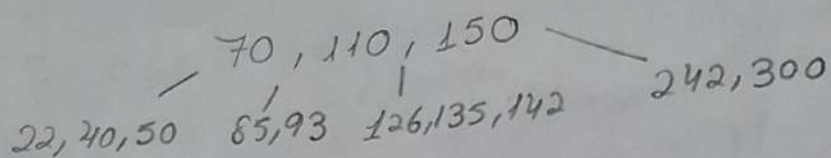 70, 110, 150
22, 40, 50 85, 93 126, 135, 142 242, 300